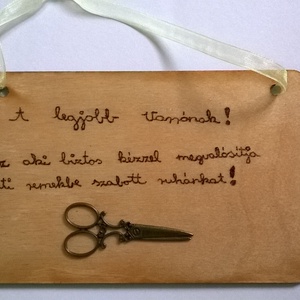 A legjobb Varrónak!
az aki biztos kézzel megvalósítja
remekbe szabott ruhánkat!